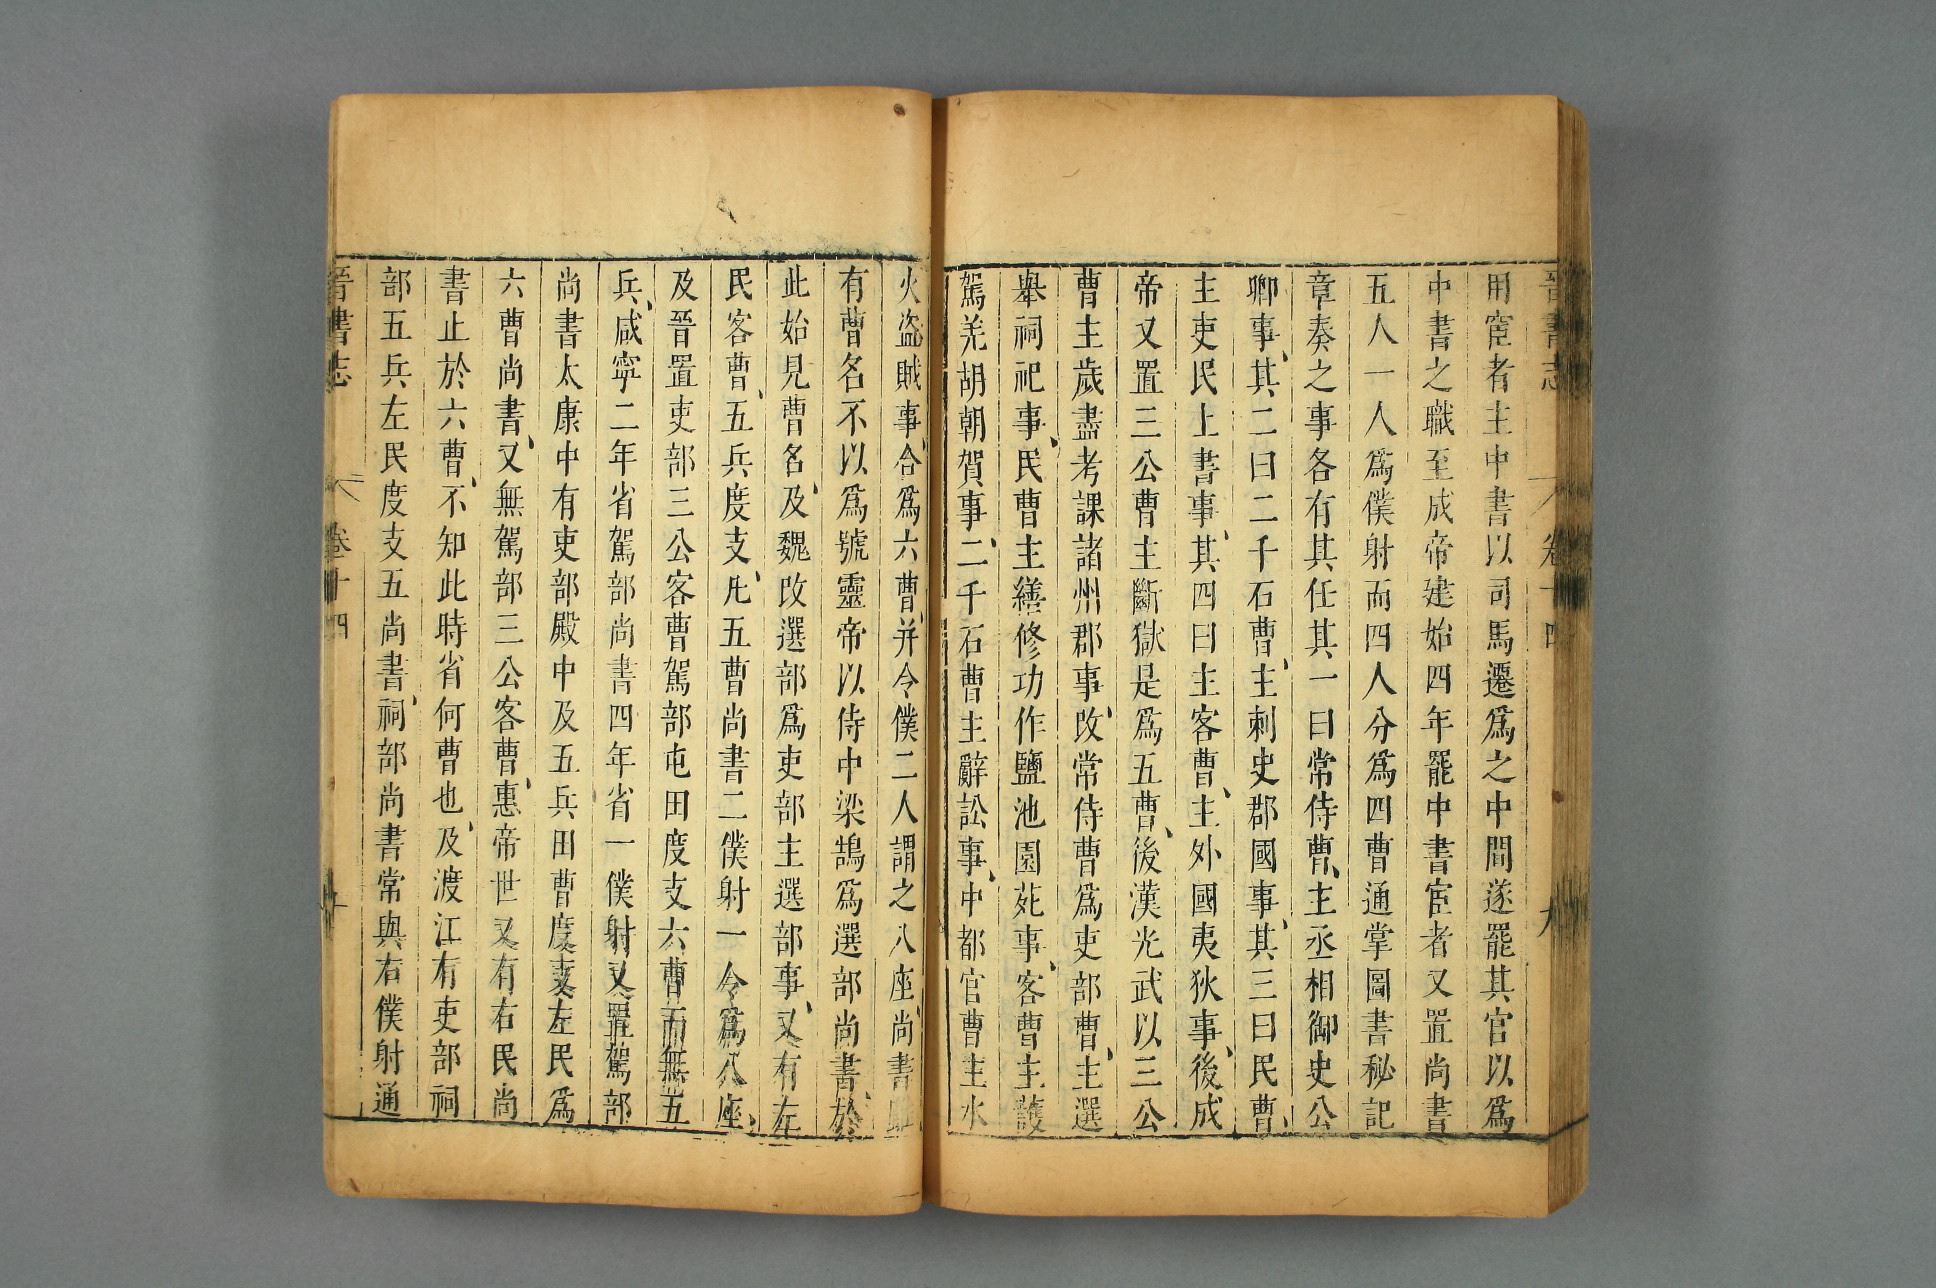 晉書志 卷十四 九
用宦者主中書以司馬遷爲之中間遂罷其官以爲
中書之職至成帝建始四年罷中書宦者又置尚書
五人一人爲僕射而四人分爲四曹通掌圖書秘記
章奏之事各有其任其一曰常侍曹主丞相御史公
卿事其二曰二千石曹主刺史郡國事其三曰民曹
主吏民上書事其四曰主客曹主外國夷狄事後成
帝又置三公曹主斷獄是爲五曹後漢光武以三公
曹主歲盡考課諸州郡事改常侍曹爲吏部曹主選
舉祠祀事民曹主繕修功作鹽池園苑事客曹主護
駕羌胡朝賀事二千石曹主辭訟事中都官曹主水
火盗賊事合爲六曹并令僕二人謂之八座尚書雖
有曹名不以爲號靈帝以侍中梁鵠爲選部尚書於
此始見曹名及魏改選部爲吏部主選部事又有左
民客曹五兵度支凡五曹尚書二僕射一令爲八座
及晉置吏部三公客曹駕部屯田度支六曹而無五
兵咸寧二年省駕部尚書四年省一僕射又置駕部
尚書太康中有吏部殿中及五兵田曹度支左民爲
六曹尚書又無駕部三公客曹惠帝世又有右民尚
書止於六曹不知此時省何曹也及渡江有吏部祠
部五兵左民度支五尚書祠部尚書常與右僕射通
晉書志 卷十四